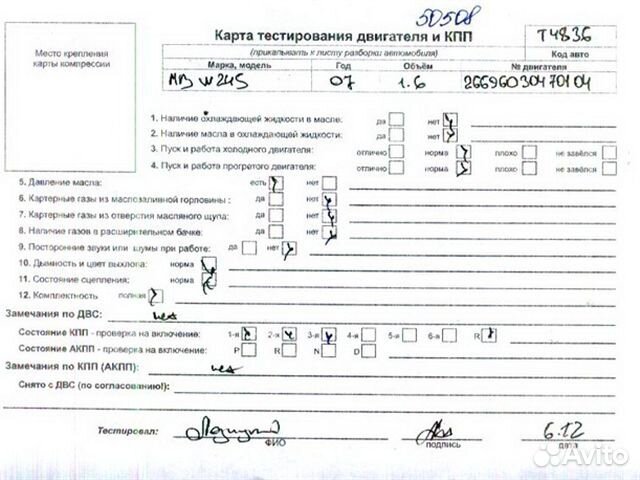 50508
Место крепления карты компрессии
Карта тестирования двигателя и КПП
T4836
(прикалывать к листу разборки автомобиля)
Код авто
Марка, модель Год Объём № двигателя
MB W245 07 1.6 26696030470104
1. Наличие охлаждающей жидкости в масле: да нет
2. Наличие масла в охлаждающей жидкости: да нет
3. Пуск и работа холодного двигателя: отлично норма плохо не завёлся
4. Пуск и работа прогретого двигателя: отлично норма плохо не завёлся
5. Давление масла: есть нет
6. Картерные газы из маслозаливной горловины : да нет
7. Картерные газы из отверстия масляного щупа: да нет
8. Наличие газов в расширительном бачке: да нет
9. Посторонние звуки или шумы при работе: да нет
10. Дымность и цвет выхлопа: норма
11. Состояние сцепления: норма
12. Комплектность полная
Замечания по ДВС: нет
Состояние КПП - проверка на включение: 1-я 2-я 3-я 4-я 5-я 6-я R
Состояние АКПП - проверка на включение: P R N D
Замечания по КПП (АКПП): нет
Снято с ДВС (по согласованию!):
Тестировал: 6.12
ФИО подпись дата
Avito